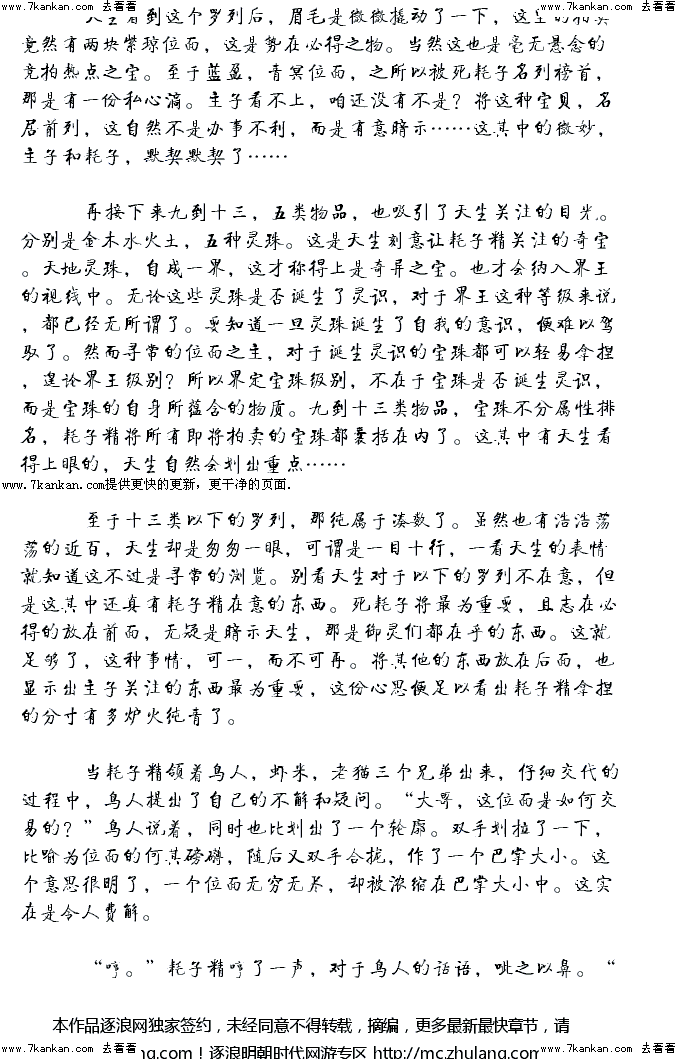 www.7kankan.com 去看看 www.7kankan.com 去看看
天生看到这个罗列后，眉毛是微微撬动了一下，这里的
竟然有两块紫琼位面，这是势在必得之物。当然这也是毫无悬念的
竞拍热点之宝。至于蓝盈，青冥位面，之所以被死耗子名列榜首，
那是有一份私心滴。主子看不上，咱还没有不是？将这种宝贝，名
居前列，这自然不是办事不利，而是有意暗示……这其中的微妙，
主子和耗子，默契默契了……
再接下来九到十三，五类物品，也吸引了天生关注的目光。
分别是金木水火土，五种灵珠。这是天生刻意让耗子精关注的奇宝
。天地灵珠，自成一界，这才称得上是奇异之宝。也才会纳入界王
的视线中。无论这些灵珠是否诞生了灵识，对于界王这种等级来说
，都已经无所谓了。要知道一旦灵珠诞生了自我的意识，便难以驾
驭了。然而寻常的位面之主，对于诞生灵识的宝珠都可以轻易拿捏
，遑论界王级别？所以界定宝珠级别，不在于宝珠是否诞生灵识，
而是宝珠的自身所蕴含的物质。九到十三类物品，宝珠不分属性排
名，耗子精将所有即将拍卖的宝珠都囊括在内了。这其中有天生看
得上眼的，天生自然会划出重点……
www.7kankan.com提供更快的更新，更干净的页面.
至于十三类以下的罗列，那纯属于凑数了。虽然也有浩浩荡
荡的近百，天生却是匆匆一眼，可谓是一目十行，一看天生的表情
就知道这不过是寻常的浏览。别看天生对于以下的罗列不在意，但
是这其中还真有耗子精在意的东西。死耗子将最为重要，且志在必
得的放在前面，无疑是暗示天生，那是御灵们都在乎的东西。这就
足够了，这种事情，可一，而不可再。将其他的东西放在后面，也
显示出主子关注的东西最为重要，这份心思便足以看出耗子精拿捏
的分寸有多炉火纯青了。
当耗子精领着鸟人，虾米，老猫三个兄弟出来，仔细交代的
过程中，鸟人提出了自己的不解和疑问。“大哥，这位面是如何交
易的？”鸟人说着，同时也比划出了一个轮廓。双手划拉了一下，
比喻为位面的何其磅礴，随后又双手合拢，作了一个巴掌大小。这
个意思很明了，一个位面无穷无尽，却被浓缩在巴掌大小中。这实
在是令人费解。
“哼。”耗子精哼了一声，对于鸟人的话语，呲之以鼻。“
本作品逐浪网独家签约，未经同意不得转载，摘编，更多最新最快章节，请
www.7kankan.com 去看看 ng.com！逐浪明朝时代网游专区 http://mc.zhulang.com www.7kankan.com 去看看